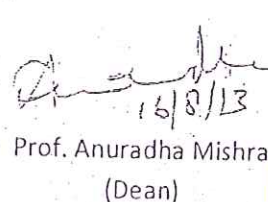 16/8/13
Prof. Anuradha Mishra
(Dean)